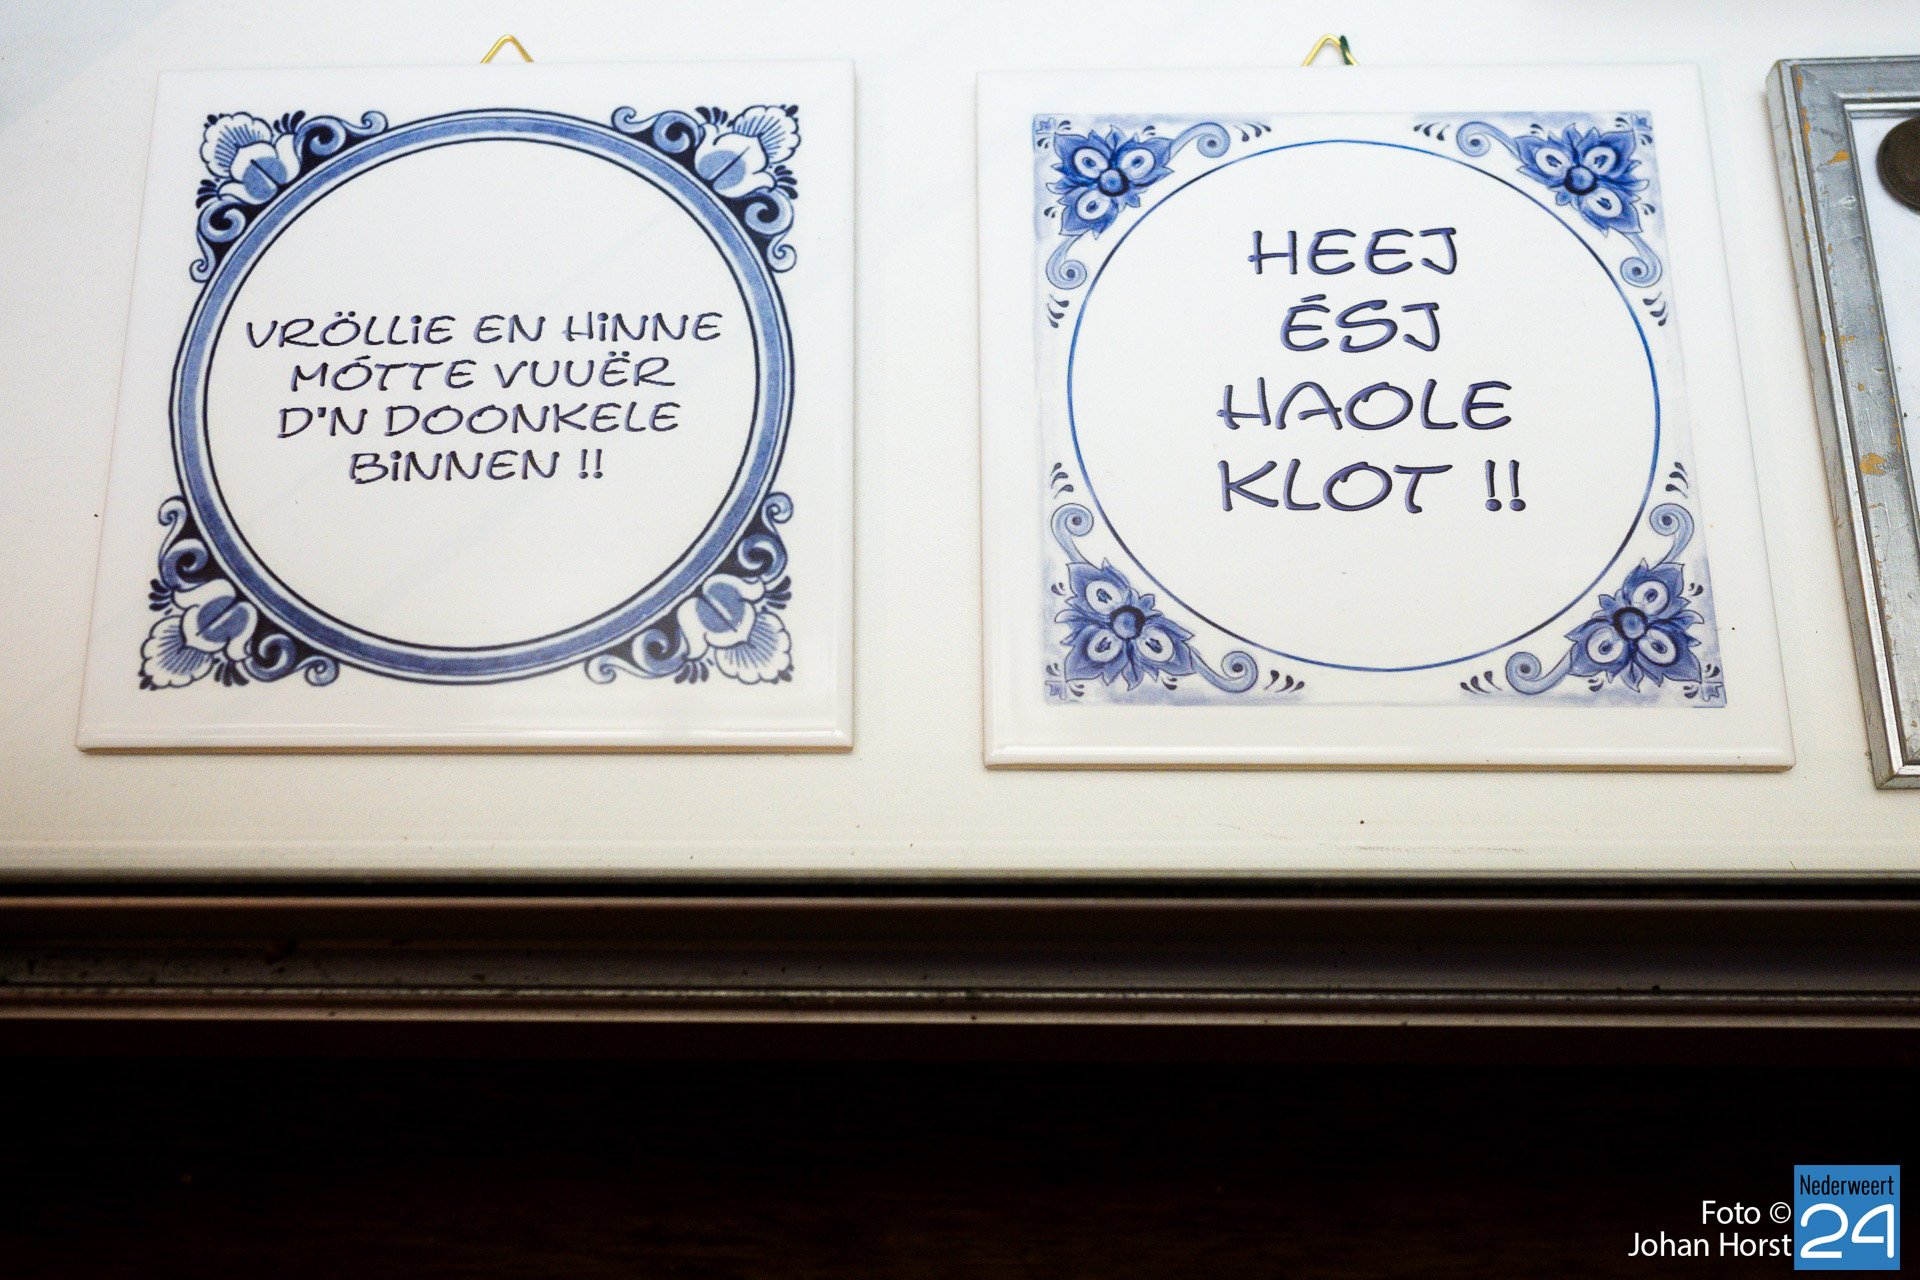 VRÖLLiE EN HiNNE
MÓTTE VUUËR
D'N DOONKELE
BiNNEN !!
HEEJ
ÉSJ
HAOLE
KLOT !!
Nederweert
24
Foto ©
Johan Horst